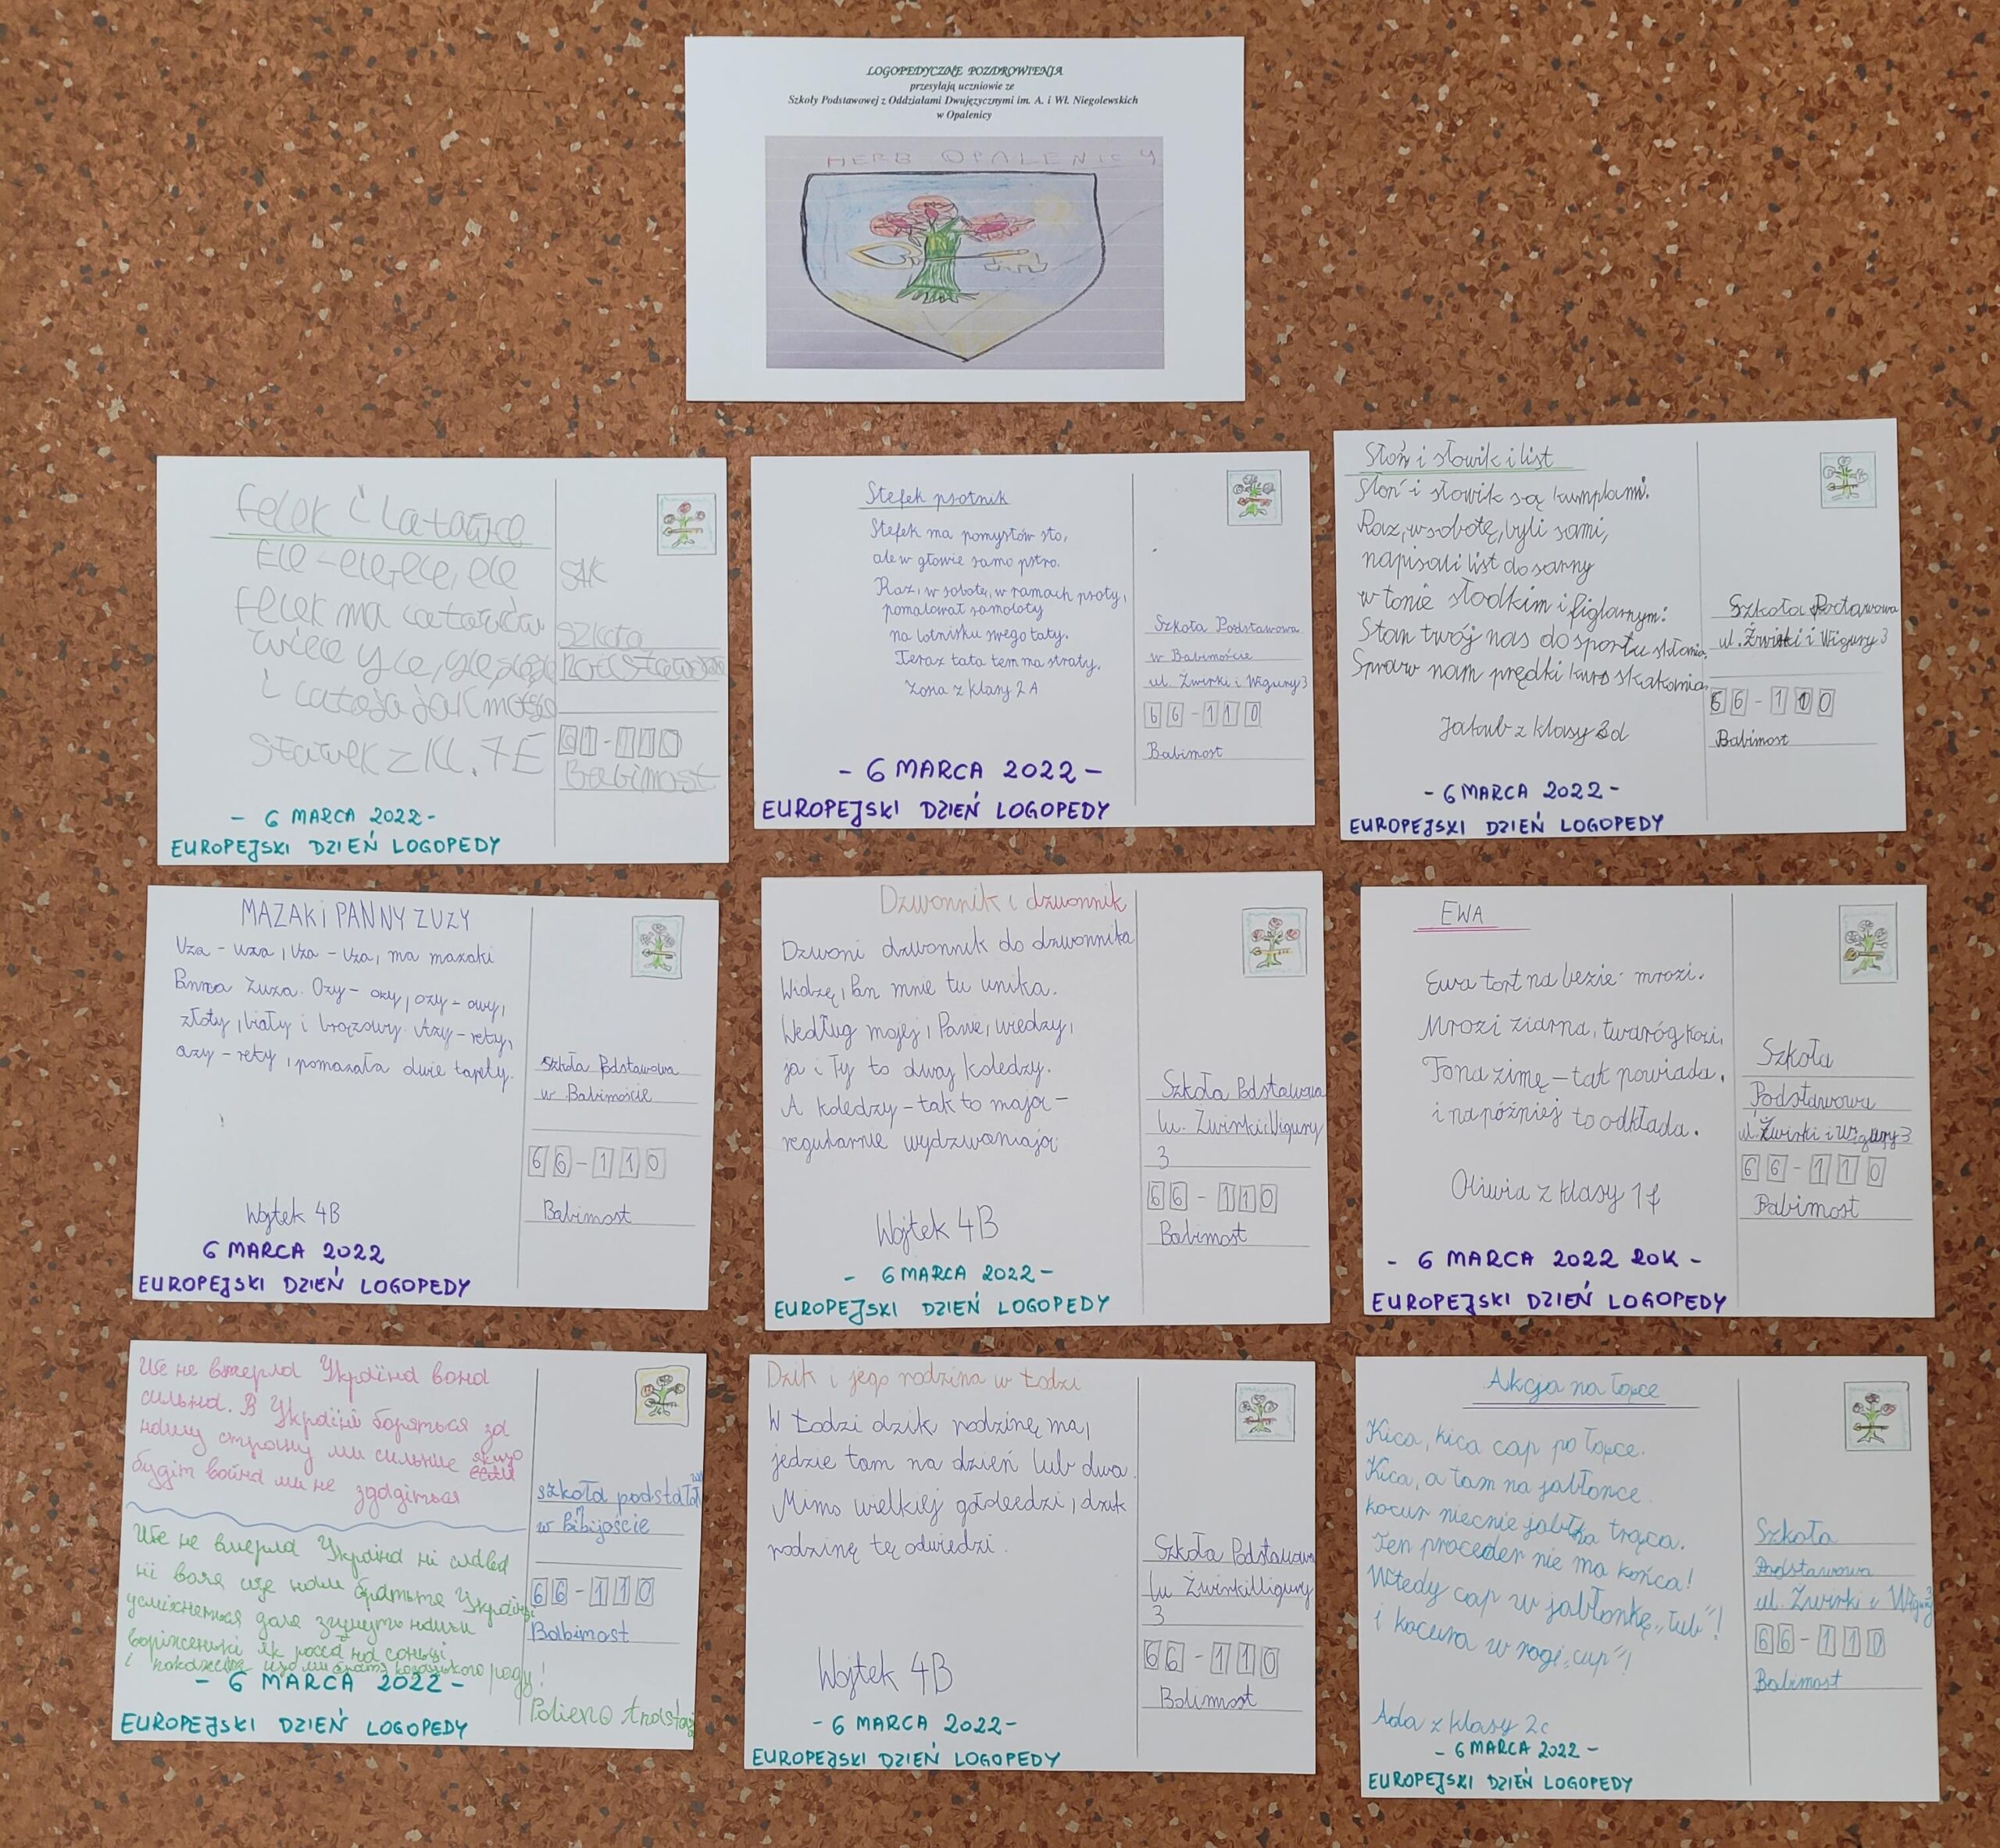 LOGOPEDYCZNE POZDROWIENIA
przesyłają uczniowie ze
Szkoły Podstawowej z Oddziałami Dwujęzycznymi im. A. i Wł. Niegolewskich
w Opalenicy
HERB OPALENICY
Felek i Latawce
Ele-ele, ele, ele
Felek ma latawców
wiele
i latają jak
Sławek z kl. 7E
- 6 MARCA 2022 -
EUROPEJSKI DZIEŃ LOGOPEDY
Szkoła
110
Babimost
Stefek psotnik
Stefek ma pomysłów sto,
ale w głowie samo pstro.
Raz, w sobotę, w ramach psoty,
pomalował samoloty
na lotnisku swego taty.
Teraz tata tem ma straty.
Zona z klasy 2A
- 6 MARCA 2022 -
EUROPEJSKI DZIEŃ LOGOPEDY
Szkoła Podstawowa
w Babimoście
ul. Żwirki i Wigury 3
66-110
Babimost
Słoń i słowik i list
Słoń i słowik są kumplami.
Raz, w sobotę, byli sami,
napisali list do sarny
w tonie słodkim i figlarnym:
Stan twój nas do sportu skłania,
Spraw nam prędki kurs skakania
Jakub z klasy 3d
- 6 MARCA 2022 -
EUROPEJSKI DZIEŃ LOGOPEDY
Szkoła Podtawowa
ul. Żwirki i Wigury 3
66-110
Babimost
MAZAKi PANNY ZUZY
Uza - uza, Uza - Uza, ma mazaki
Panna Zuza. Ozy - ozy, ozy - owy,
złoty, biały i brązowy. Azy - rety,
azy - rety, pomazała dwie tapety.
Wojtek 4B
6 MARCA 2022
EUROPEJSKI DZIEŃ LOGOPEDY
Szkoła Podstawowa
w Babimoście
66-110
Babimost
Dzwonnik i dzwonnik
Dzwoni dzwonnik do dzwonnika
Widzę, Pan mnie tu unika.
Według mojej, Panie, wiedzy,
ja i Ty to dwaj koledzy.
A koledzy - tak to mają -
regularnie wydzwaniają
Wojtek 4B
- 6 MARCA 2022 -
EUROPEJSKI DZIEŃ LOGOPEDY
Szkoła Podstawowa
lu. Żwirki i Wigury
3
66-110
Babimost
EWA
Ewa tort na bezie mrozi.
Mrozi ziarna, twaróg kozi,
To na zimę - tak powiada,
i na później to odkłada.
Oliwia z klasy 1f
- 6 MARCA 2022 ROK -
EUROPEJSKI DZIEŃ LOGOPEDY
Szkoła
Podstawowa
ul. Żwirki i Wigury 3
66-110
Babimost
Ще не вмерла Україна вона
сильна. В Україні боряться за
нашу страну ми сильние
будіт война ми не здадіться
Ще не вмерла Україна ні слава
ні воля ще нам браття Україн
усміхнеться доля згинуть наши
воріженьки як роса на сонці
і покажем що ми браття козацького роду!
- 6 MARCA 2022 -
EUROPEJSKI DZIEŃ LOGOPEDY
szkoła
w
66-110
Babimost
Dzik i jego rodzina w Łodzi
W Łodzi dzik rodzinę ma,
jedzie tam na dzień lub dwa.
Mimo wielkiej gołoledzi, dzik
rodzinę tę odwiedzi.
Wojtek 4B
- 6 MARCA 2022 -
EUROPEJSKI DZIEŃ LOGOPEDY
Szkoła Podstawowa
lu
3
66-110
Babimost
Akcja na łące
Kica, kica cap po łące.
Kica, a tam na jabłonce
kocur niecnie jabłka trąca.
Ten proceder nie ma końca!
Wtedy cap w jabłonkę „łub"!
i kocura w rogi „cup"!
Ada z klasy 2c
- 6 MARCA 2022 -
EUROPEJSKI DZIEŃ LOGOPEDY
Szkoła
Podstawowa
ul. Żwirki i Wigury 3
66-110
Babimost